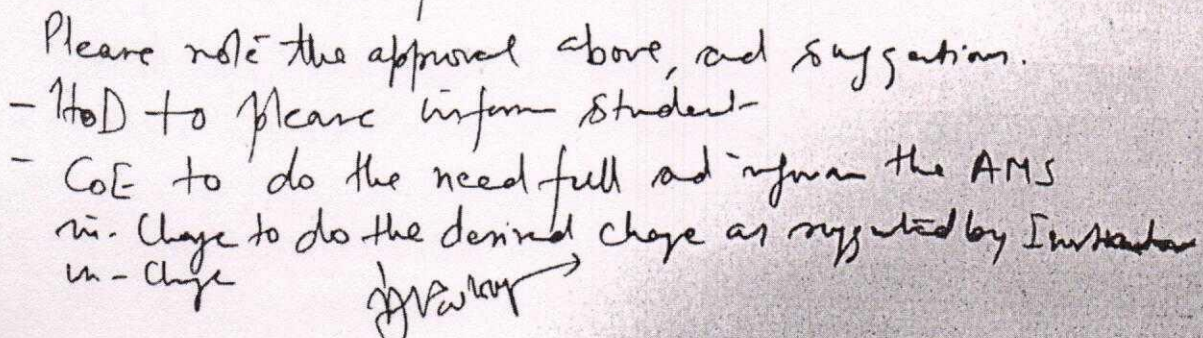 Please note the approval above, and suggestions.
- HoD to please inform student
- CoE to do the need full and inform the AMS
in-Charge to do the desired change as suggested by Instructor
in-Charge